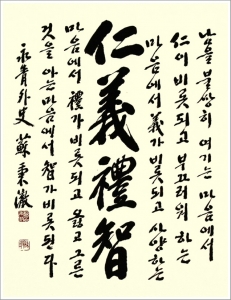 남을 불쌍히 여기는 마음에서
仁이 비롯되고 부끄러워 하는
마음에서 義가 비롯되고 사양하는
仁義禮智
마음에서 禮가 비롯되고 옳고 그른
것을 아는 마음에서 智가 비롯된다
永青外史 蘇秉